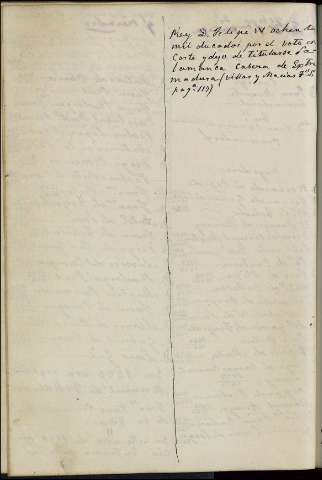 Rey D. Felipe IV ochenta
mil ducados por el voto en
Corte y dejo de titularse Sa-
lamanca cabeza de Extre
madura (Villar y Macias Tº 3º
pagª 119)